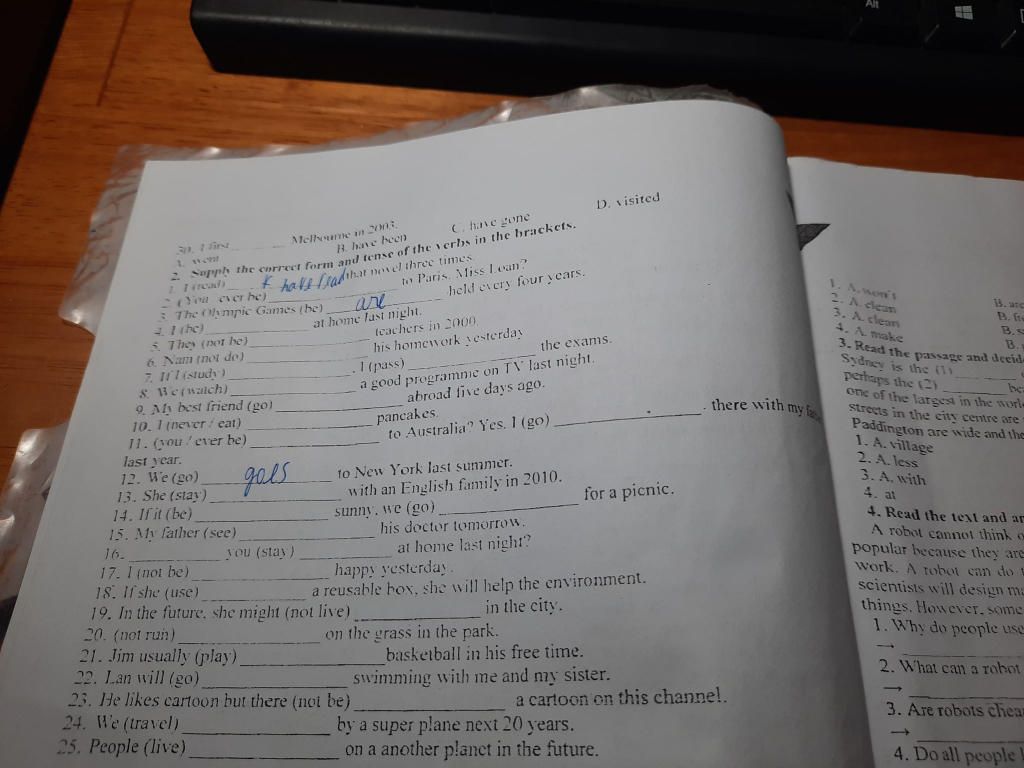 30. I first __________ Melbourne in 2003.
A. went B. have been C. have gone D. visited
2. Supply the correct form and tense of the verbs in the brackets.
1. I (read) __________ have read that novel three times.
2. (You ever be) __________ to Paris, Miss Loan?
3. The Olympic Games (be) are held every four years.
4. I (be) __________ at home last night.
5. They (not be) __________ teachers in 2000.
6. Nam (not do) __________ his homework yesterday
7. If I (study) __________ . I (pass) __________ the exams.
8. We (watch) __________ a good programme on TV last night.
9. My best friend (go) __________ abroad five days ago.
10. I (never / eat) __________ pancakes.
11. (you / ever be) __________ to Australia? Yes. I (go) __________ . there with my
last year.
12. We (go) goes to New York last summer.
13. She (stay) __________ with an English family in 2010.
14. If it (be) __________ sunny, we (go) __________ for a picnic.
15. My father (see) __________ his doctor tomorrow.
16. __________ you (stay) __________ at home last night?
17. I (not be) __________ happy yesterday.
18. If she (use) __________ a reusable box, she will help the environment.
19. In the future, she might (not live) __________ in the city.
20. (not run) __________ on the grass in the park.
21. Jim usually (play) __________ basketball in his free time.
22. Lan will (go) __________ swimming with me and my sister.
23. He likes cartoon but there (not be) __________ a cartoon on this channel.
24. We (travel) __________ by a super plane next 20 years.
25. People (live) __________ on a another planet in the future.
1. A. won't B. are
2. A. clean B.
3. A. clean B.
4. A. make B.
3. Read the passage and decide
Sydney is the (1) __________
perhaps the (2) __________
one of the largest in the world
streets in the city centre are
Paddington are wide and the
1. A. village
2. A. less
3. A. with
4. at
4. Read the text and
A robot cannot think
popular because they are
work. A robot can do
scientists will design
things. However, some
1. Why do people use
→
2. What can a robot
→
3. Are robots
→
4. Do all people
Alt